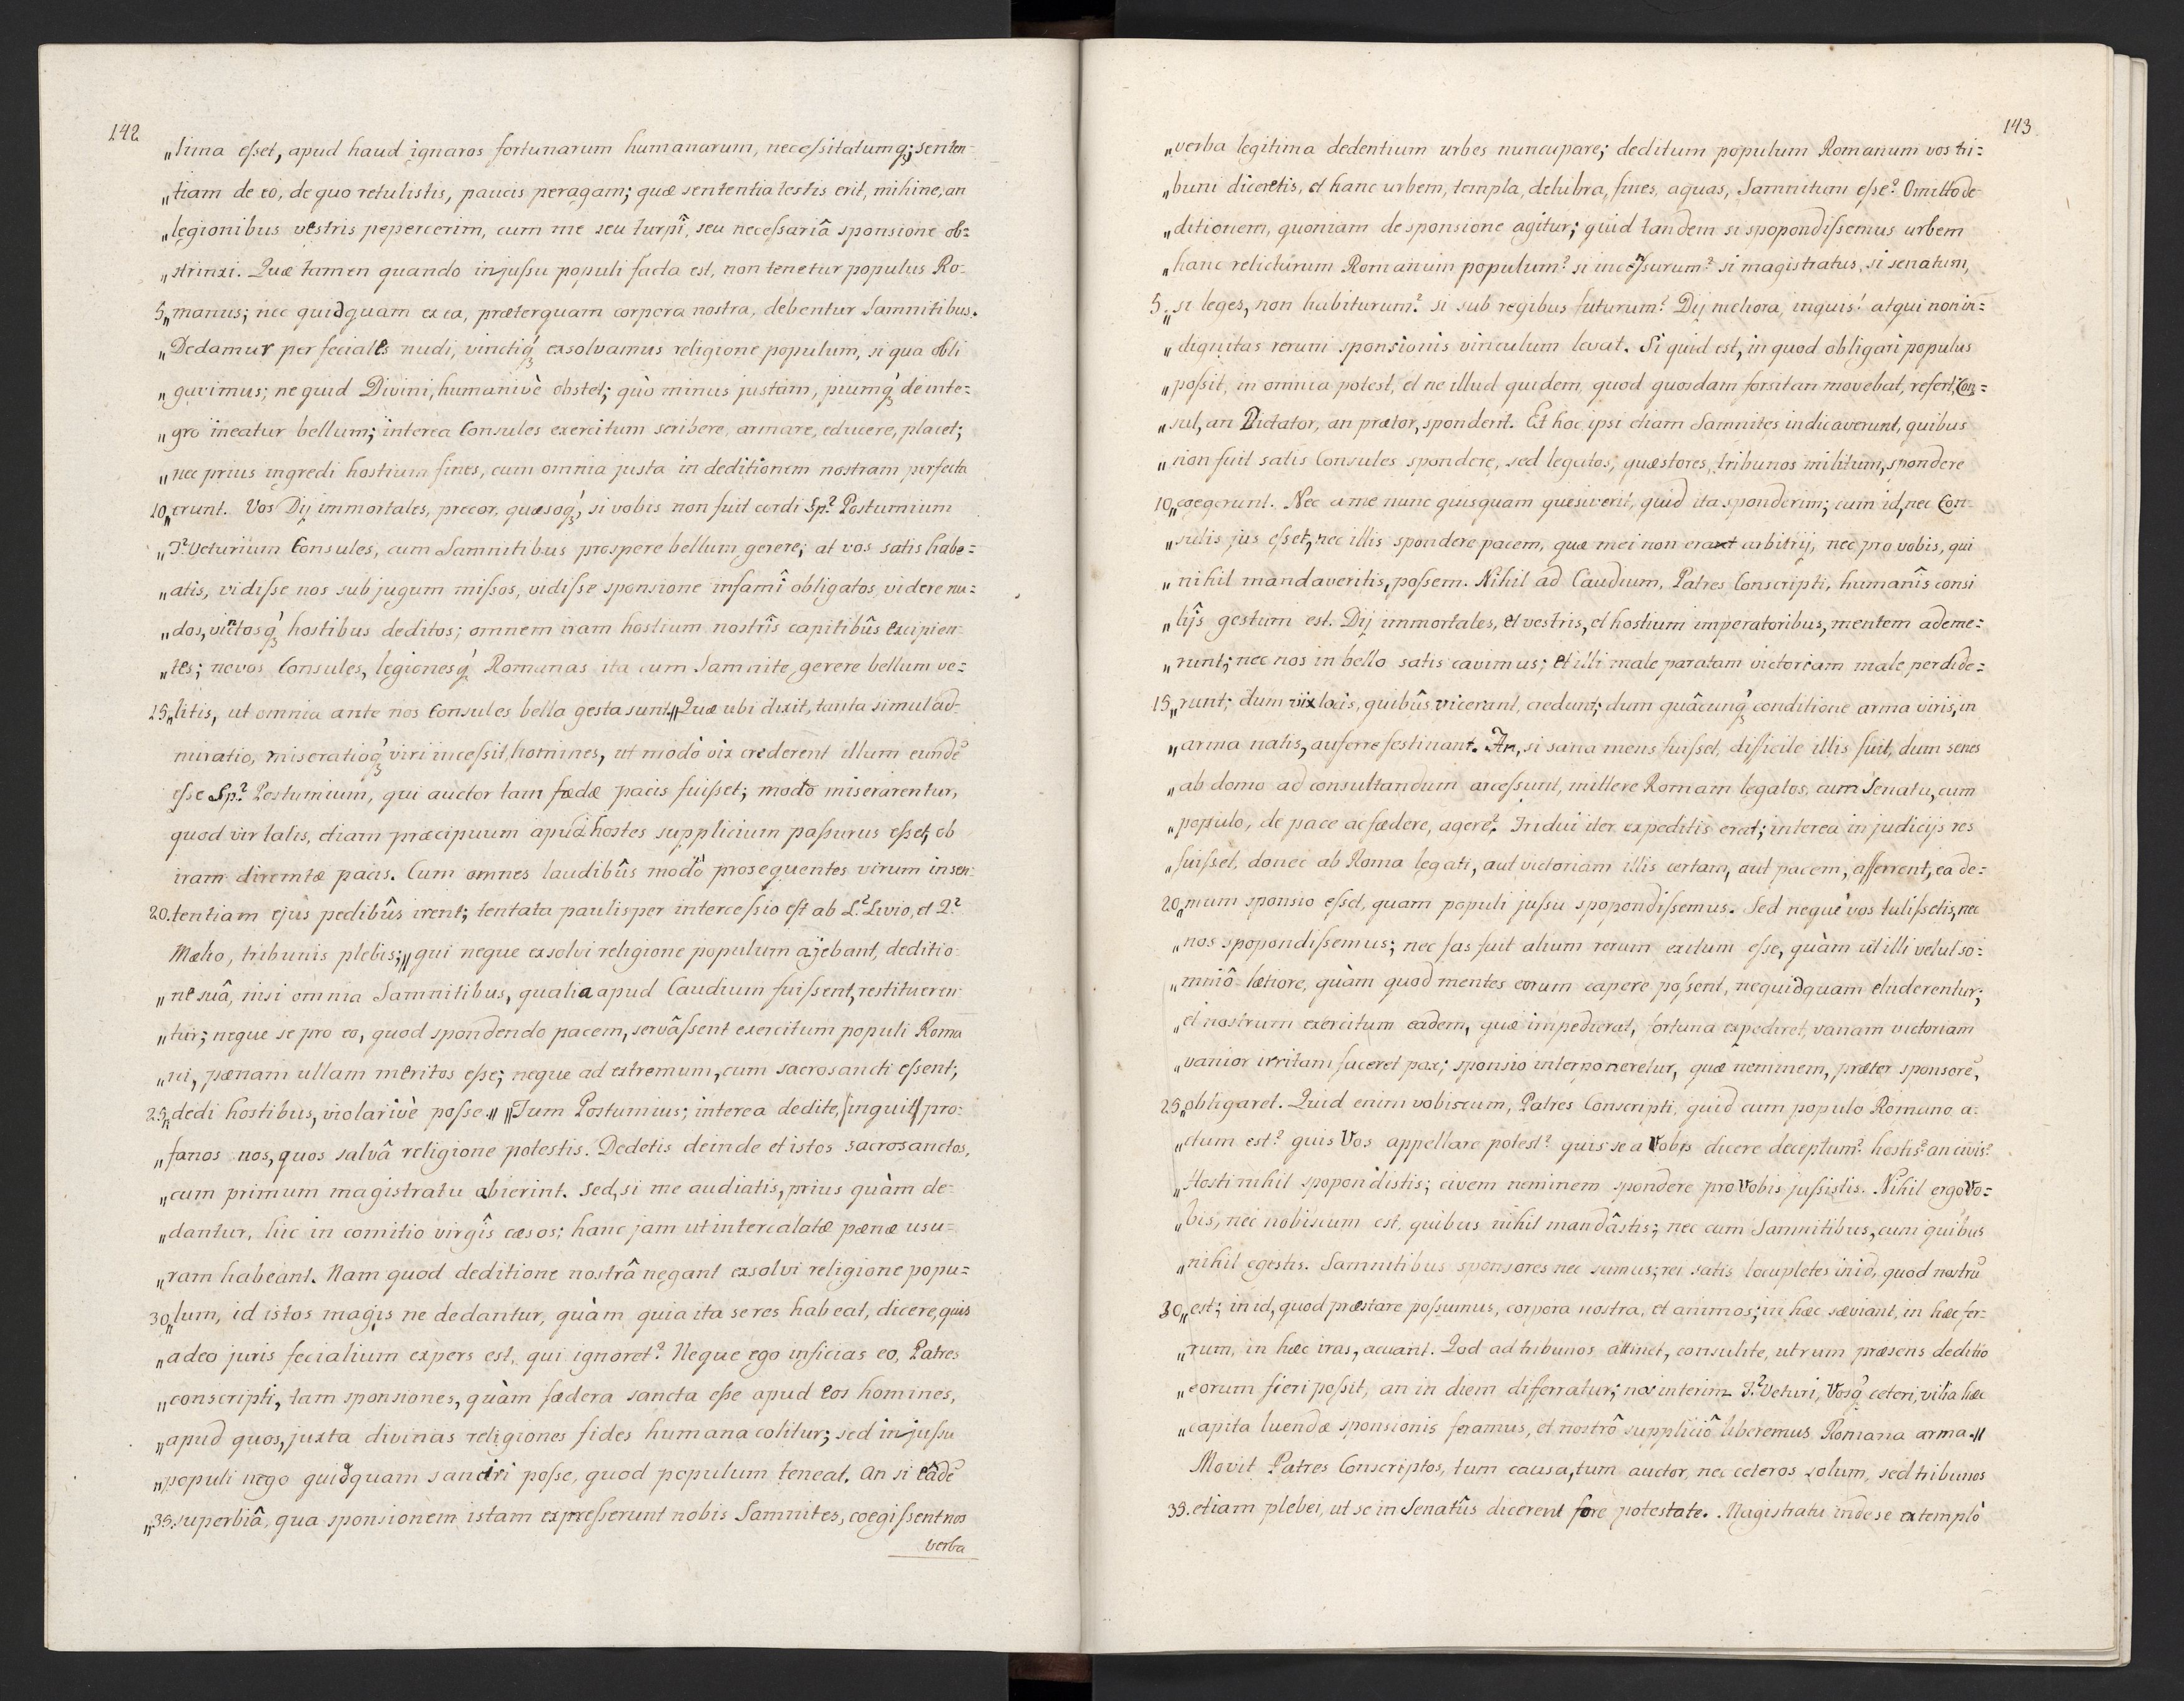 142
„tima eſset, apud haud ignaros fortunarum humanarum, neceſsitatumq;; senten-
„tiam de eo, de quo retulistis, paucis peragam; quæ sententia testis erit, mihine, an
„legionibus vestris pepercerim, cum me seu turpî, seu neceſsariâ sponsione ob=
„strinxi. Quæ tamen quando injuſsu populi facta est, non tenetur populus Ro-
5„manus; nec quidquam ex ea, præterquam corpora nostra, debentur Samnitibus.
„Dedamur per feciales nudi, vinctiq́; exsolvamus religione populum, si qua obli
„gavimus; ne quid Divini, humanivè obstet; quò minus justum, piumq́; de inte=
„gro ineatur bellum; interea Consules exercitum scribere, armare, educere, placet;
„nec prius ingredi hostium fines, cum omnia justa in deditionem nostram perfecta
10„erunt. Vos Dij immortales, precor, quæsoq́;, si vobis non fuit cordi Sp.? Postumium
„T.? Veturium Consules, cum Samnitibus prospere bellum gerere; at vos satis habe=
„atis, vidiſse nos sub jugum miſsos, vidiſse sponsione infamî obligatos, videre nu=
„dos, vinctosq́; hostibus deditos; omnem iram hostium nostrîs capitibûs excipien-
„tes; novos Consules, legionesq́; Romanas ita cum Samnite gerere bellum ve=
15„litis, ut omnia ante nos Consules bella gesta sunt.„ Quæ ubi dixit, tanta simul ad-
miratio, miseratioq́; viri inceſsit homines, ut modò vix crederent illum eundē
eſse Sp.? Postumium, qui auctor tam fœdæ pacis fuiſset; modò miserarentur,
quod vir talis, etiam præcipuum apud hostes supplicium paſsurus eſset, ob
iram diremtæ pacis. Cum omnes laudibûs modò prosequentes virum in sen-
20. tentiam ejus pedibûs irent; tentata paulisper interceſsio est ab L.? Livio, et Q.?
Mælio, tribunis plebis; „qui neque exsolvi religione populum ajebant, deditio
„ne suâ, nisi omnia Samnitibus, qualia apud Caudium fuiſsent, restitueren-
„tur; neque se pro eo, quod spondendo pacem, servâſsent exercitum populi Roma
„ni, pœnam ullam meritos eſse; neque ad extremum, cum sacrosancti eſsent,
25„dedi hostibus, violarivè poſse.„ „Tum Postumius; interea dedite, (inquit) pro=
„fanos nos, quos salvâ religione potestis. Dedetis deinde et istos sacrosanctos,
„cum primum magistratu abierint. Sed, si me audiatis, prius quàm de-
„dantur, hic in comitio virgîs cæsos; hanc jam ut intercalatæ pœnæ usu=
„ram habeant. Nam quod deditione nostrâ negant exsolvi religione popu=
30„lum, id istos magis ne dedantur, quàm quia ita se res habeat, dicere, quis
„adeo juris fecialium expers est, qui ignoret? Neque ego inficias eo, Patres
„conscripti, tam sponsiones, quàm fœdera sancta eſse apud eos homines,
„apud quos, juxta divinas religiones fides humana colitur; sed injuſsu
„populi nego quidquam sanciri poſse, quod populum teneat. An si eâdē
„35. superbiâ, qua sponsionem istam expreſserunt nobis Samnites, coegiſsent nos
verba
143
„verba legitima dedentium urbes nuncupare; deditum populum Romanum vos tri=
„buni diceretis, et hanc urbem, templa, delubra, fines, aquas, Samnitum eſse? Omitto de-
„ditionem, quoniam de sponsione agitur; quid tandem si spopondiſsemus urbem
„hanc relicturum Romanum populum? si incensurum? si magistratus, si senatum,
5„si leges, non habiturum? si sub regibus futurum? Dij meliora, inquis! atqui non in=
„dignitas rerum sponsionis vinculum levat. Si quid est, in quod obligari populus
„poſsit, in omnia potest, et ne illud quidem, quod quosdam forsitan movebat, refert, Con=
„sul, an Dictator, an prætor, sponderit. Et hoc ipsi etiam Samnites indicaverunt, quibus
„non fuit satis Consules spondere, sed legatos, quæstores, tribunos militum, spondere
10„coegerunt. Nec a me nunc quisquam quesiverit, quid ita sponderim; cum id, nec Con-
„sulis jus eſset, nec illis spondere pacem, quæ mei non erat arbitrij, nec pro vobis, qui
„nihil mandaveritis, poſsem. Nihil ad Caudium, Patres Conscripti, humanîs consi
„lijs gestum est. Dij immortales, et vestris, et hostium imperatoribus, mentem ademe=
„runt; nec nos in bello satis cavimus; et illi male paratam victoriam male perdide=
15„runt; dum vix locis, quibûs vicerant, credunt; dum quâcunq́; conditione arma viris, in
„arma natis, auferre festinant. An, si sana mens fuiſset, difficile illis fuit, dum senes
„ab domo ad consultandum arceſsunt, mittere Romam legatos, cum Senatu, cum
„populo, de pace ac fœdere, agere? Tridui iter expeditis erat; interea in judicijs res
„fuiſset, donec ab Roma legati, aut victoriam illis certam, aut pacem, afferrent, ea de=
20„mum sponsio eſset, quam populi juſsu spopondiſsemus. Sed neque vos tuliſsetis, nec
„nos spopondiſsemus; nec fas fuit alium rerum exitum eſse, quàm ut illi velut so=
„mniô lætiore, quàm quod mentes eorum capere poſsent, nequidquam eluderentur;
„et nostrum exercitum eadem, quæ impedierat, fortuna expediret, vanam victoriam
„vanior irritam faceret pax; sponsio interponeretur, quæ neminem, præter sponsorē,
25„obligaret. Quid enim vobiscum, Patres Conscripti, quid cum populo Romano a-
„ctum est? quis Vos appellare potest? quis se a Vobis dicere deceptum? hostis? an civis?
„Hosti nihil spopondistis; civem neminem spondere pro Vobis juſsistis. Nihil ergo Vo=
„bis, nec nobiscum est, quibus nihil mandâstis; nec cum Samnitibus, cum quibus
„nihil egistis. Samnitibus sponsores nec sumus; rei satis locupletes in id, quod nostrū
30„est; in id, quod præstare poſsumus, corpora nostra, et animos; in hæc sæviant, in hæc fer-
„rum, in hæc iras, acuant. Qod ad tribunos attinet, consulite, utrum præsens deditio
„eorum fieri poſsit, an in diem differratur; nos interim T.? Veturi, Vosq́; ceteri, vilia hæc
„capita luendæ sponsionis feramus, et nostrô suppliciô liberemus Romana arma.„
Movit Patres Conscriptos, tum causa, tum auctor, nec ceteros solum, sed tribunos
35. etiam plebei, ut se in Senatûs dicerent fore potestate. Magistratu inde se extemplò